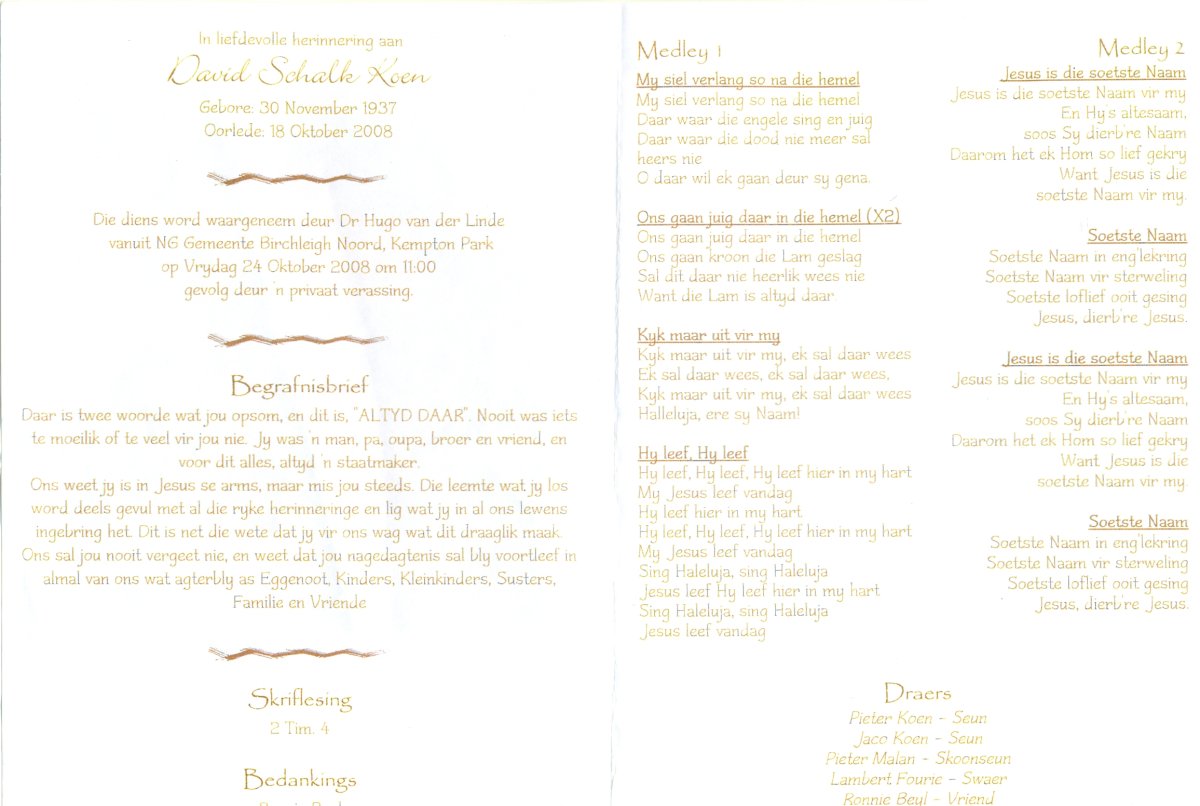 In liefdevolle herinnering aan
David Schalk Koen
Gebore: 30 November 1937
Oorlede: 18 Oktober 2008
Die diens word waargeneem deur Dr Hugo van der Linde
vanuit NG Gemeente Birchleigh Noord, Kempton Park
op Vrydag 24 Oktober 2008 om 11:00
gevolg deur 'n privaat verassing.
Begrafnisbrief
Daar is twee woorde wat jou opsom, en dit is, "ALTYD DAAR". Nooit was iets
te moeilik of te veel vir jou nie. Jy was 'n man, pa, oupa, broer en vriend, en
voor dit alles, altyd 'n staatmaker.
Ons weet jy is in Jesus se arms, maar mis jou steeds. Die leemte wat jy los
word deels gevul met al die ryke herinneringe en lig wat jy in al ons lewens
ingebring het. Dit is net die wete dat jy vir ons wag wat dit draaglik maak.
Ons sal jou nooit vergeet nie, en weet dat jou nagedagtenis sal bly voortleef in
almal van ons wat agterbly as Eggenoot, Kinders, Kleinkinders, Susters,
Familie en Vriende
Skriflesing
2 Tim. 4
Bedankings
Medley 1
My siel verlang so na die hemel
My siel verlang so na die hemel
Daar waar die engele sing en juig
Daar waar die dood nie meer sal
heers nie
O daar wil ek gaan deur sy gena.
Ons gaan juig daar in die hemel (X2)
Ons gaan juig daar in die hemel
Ons gaan kroon die Lam geslag
Sal dit daar nie heerlik wees nie
Want die Lam is altyd daar
Kyk maar uit vir my
Kyk maar uit vir my, ek sal daar wees
Ek sal daar wees, ek sal daar wees,
Kyk maar uit vir my, ek sal daar wees
Halleluja, ere sy Naam!
Hy leef, Hy leef
Hy leef, Hy leef, Hy leef hier in my hart
My Jesus leef vandag
Hy leef hier in my hart
Hy leef, Hy leef, Hy leef hier in my hart
My Jesus leef vandag
Sing Haleluja, sing Haleluja
Jesus leef Hy leef hier in my hart
Sing Haleluja, sing Haleluja
Jesus leef vandag
Medley 2
Jesus is die soetste Naam
Jesus is die soetste Naam vir my
En Hy's altesaam,
soos Sy dierb're Naam
Daarom het ek Hom so lief gekry
Want Jesus is die
soetste Naam vir my.
Soetste Naam
Soetste Naam in eng'lekring
Soetste Naam vir sterweling
Soetste loflief ooit gesing
Jesus, dierb're Jesus.
Jesus is die soetste Naam
Jesus is die soetste Naam vir my
En Hy's altesaam,
soos Sy dierb're Naam
Daarom het ek Hom so lief gekry
Want Jesus is die
soetste Naam vir my.
Soetste Naam
Soetste Naam in eng'lekring
Soetste Naam vir sterweling
Soetste loflief ooit gesing
Jesus, dierb're Jesus.
Draers
Pieter Koen - Seun
Jaco Koen - Seun
Pieter Malan - Skoonseun
Lambert Fourie - Swaer
Ronnie Beyl - Vriend